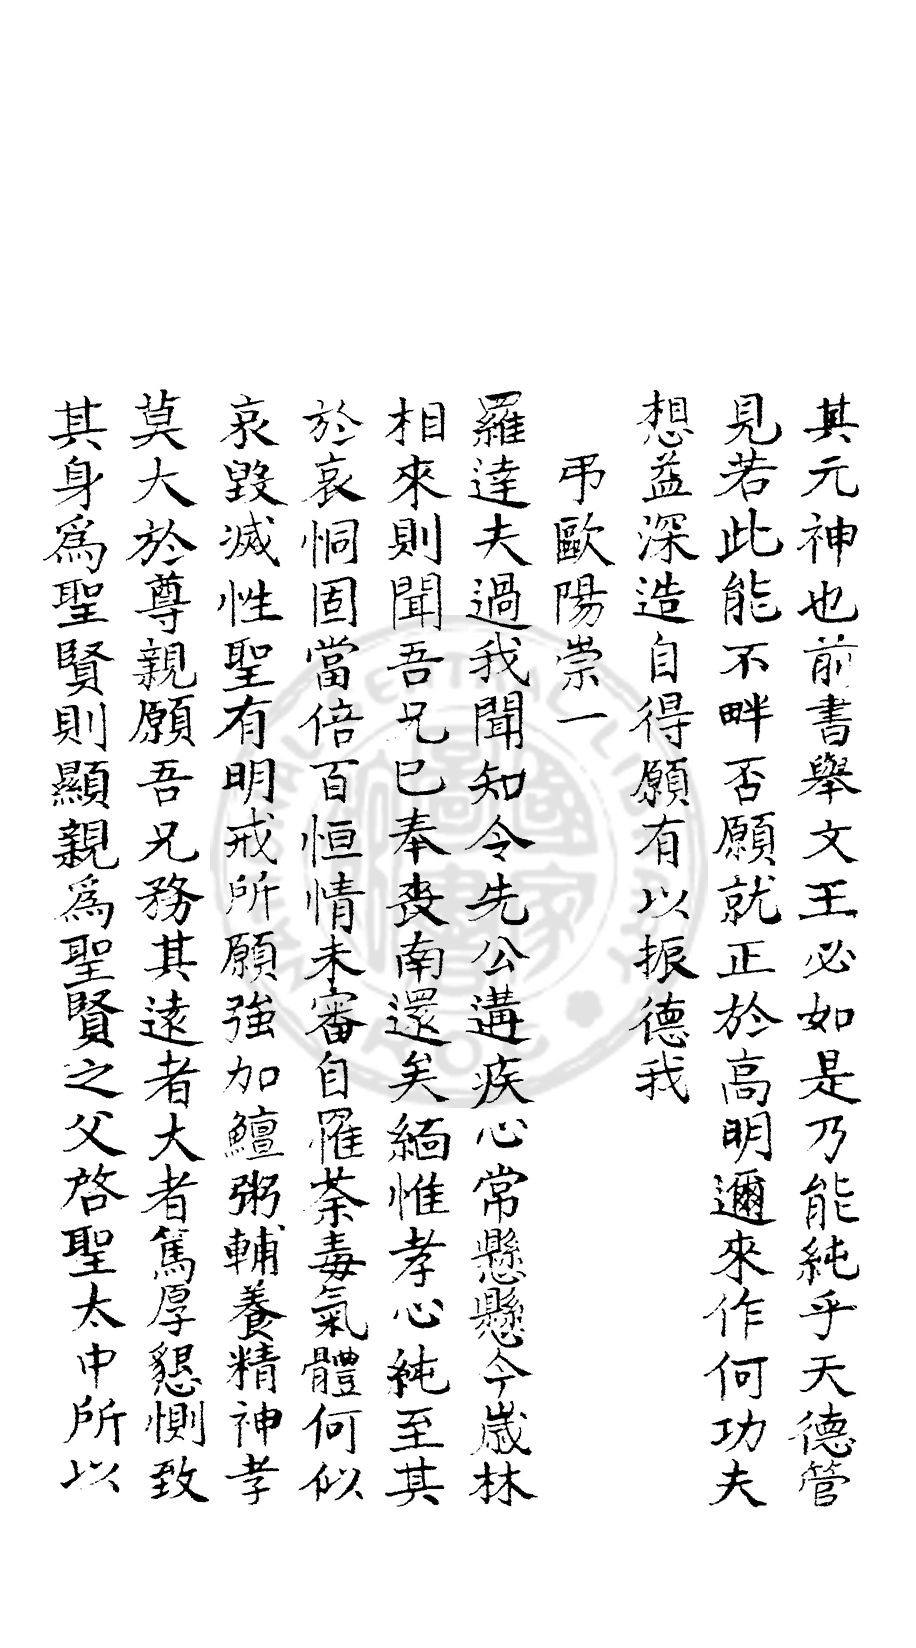 其元神也前書舉文王必如是乃能純乎天德管
見若此能不畔否願就正於高明邇來作何功夫
想益深造自得願有以振德我
弔歐陽崇一
羅達夫過我聞知令先公遘疾心常懸懸今歲林
相來則聞吾兄已奉喪南還矣緬惟孝心純至其
於哀恫固當倍百恒情未審自罹荼毒氣體何似
哀毀滅性聖有明戒所願強加饘粥輔養精神孝
莫大於尊親願吾兄務其遠者大者篤厚懇惻致
其身為聖賢則顯親為聖賢之父啓聖太中所以